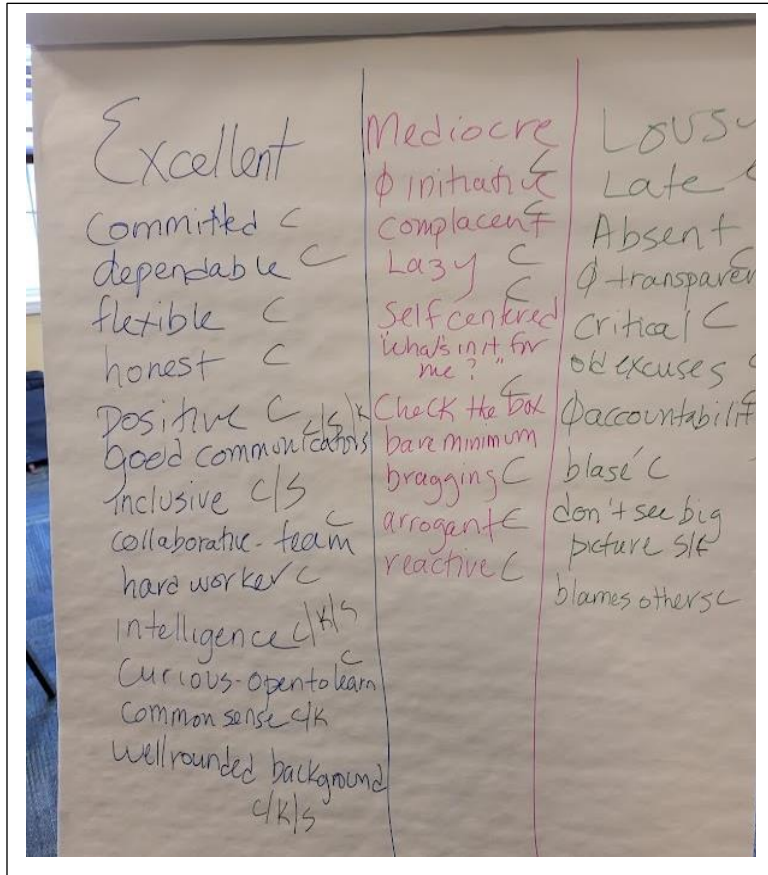 Excellent
Committed C
dependable C
flexible C
honest C
Positive C
C/S/K
good communicators
Inclusive C/S
C
collaborative-team
hard worker C
intelligence C/K/S
C
Curious-open to learn
Common sense C/K
Wellrounded background
C/K/S
Mediocre
C
Ø initiative
C
Complacent
Lazy C
C
Self centered
"what's in it for
me?"
C
Check the box
bare minimum
bragging C
arrogant C
reactive C
Late
Absent
C
Critical C
old excuses
blasé C
don't see big
picture
blames others C